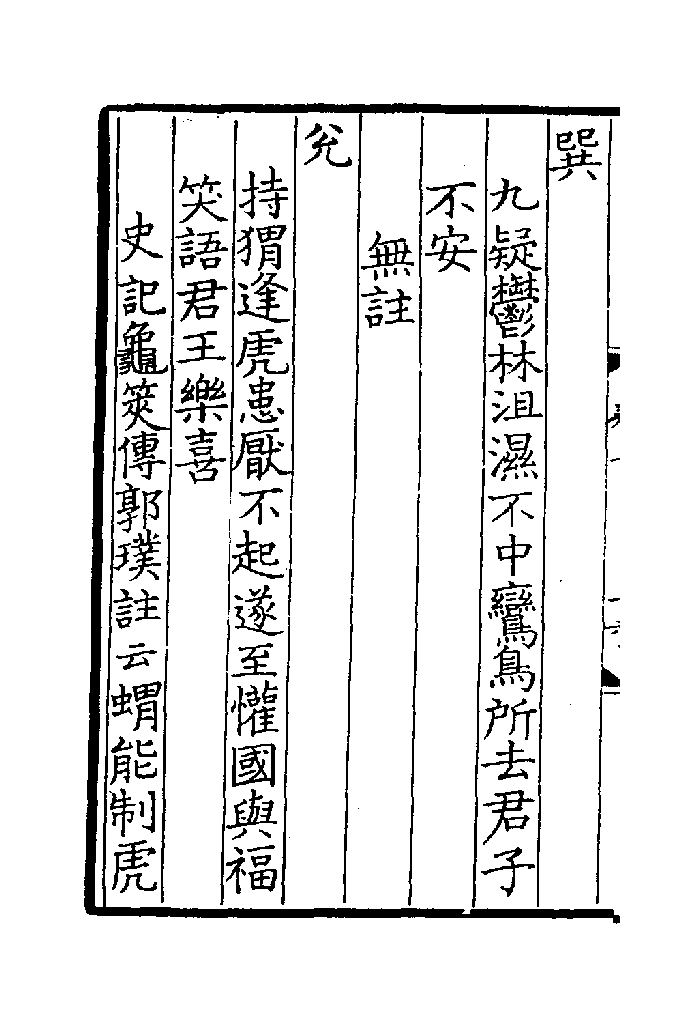 巽
九疑鬱林沮濕不中鸞鳥所去君子
不安
無註
兊
持猬逢虎患厭不起遂至懽國與福
笑語君王樂喜
史記龜筴傳郭璞註云蝟能制虎